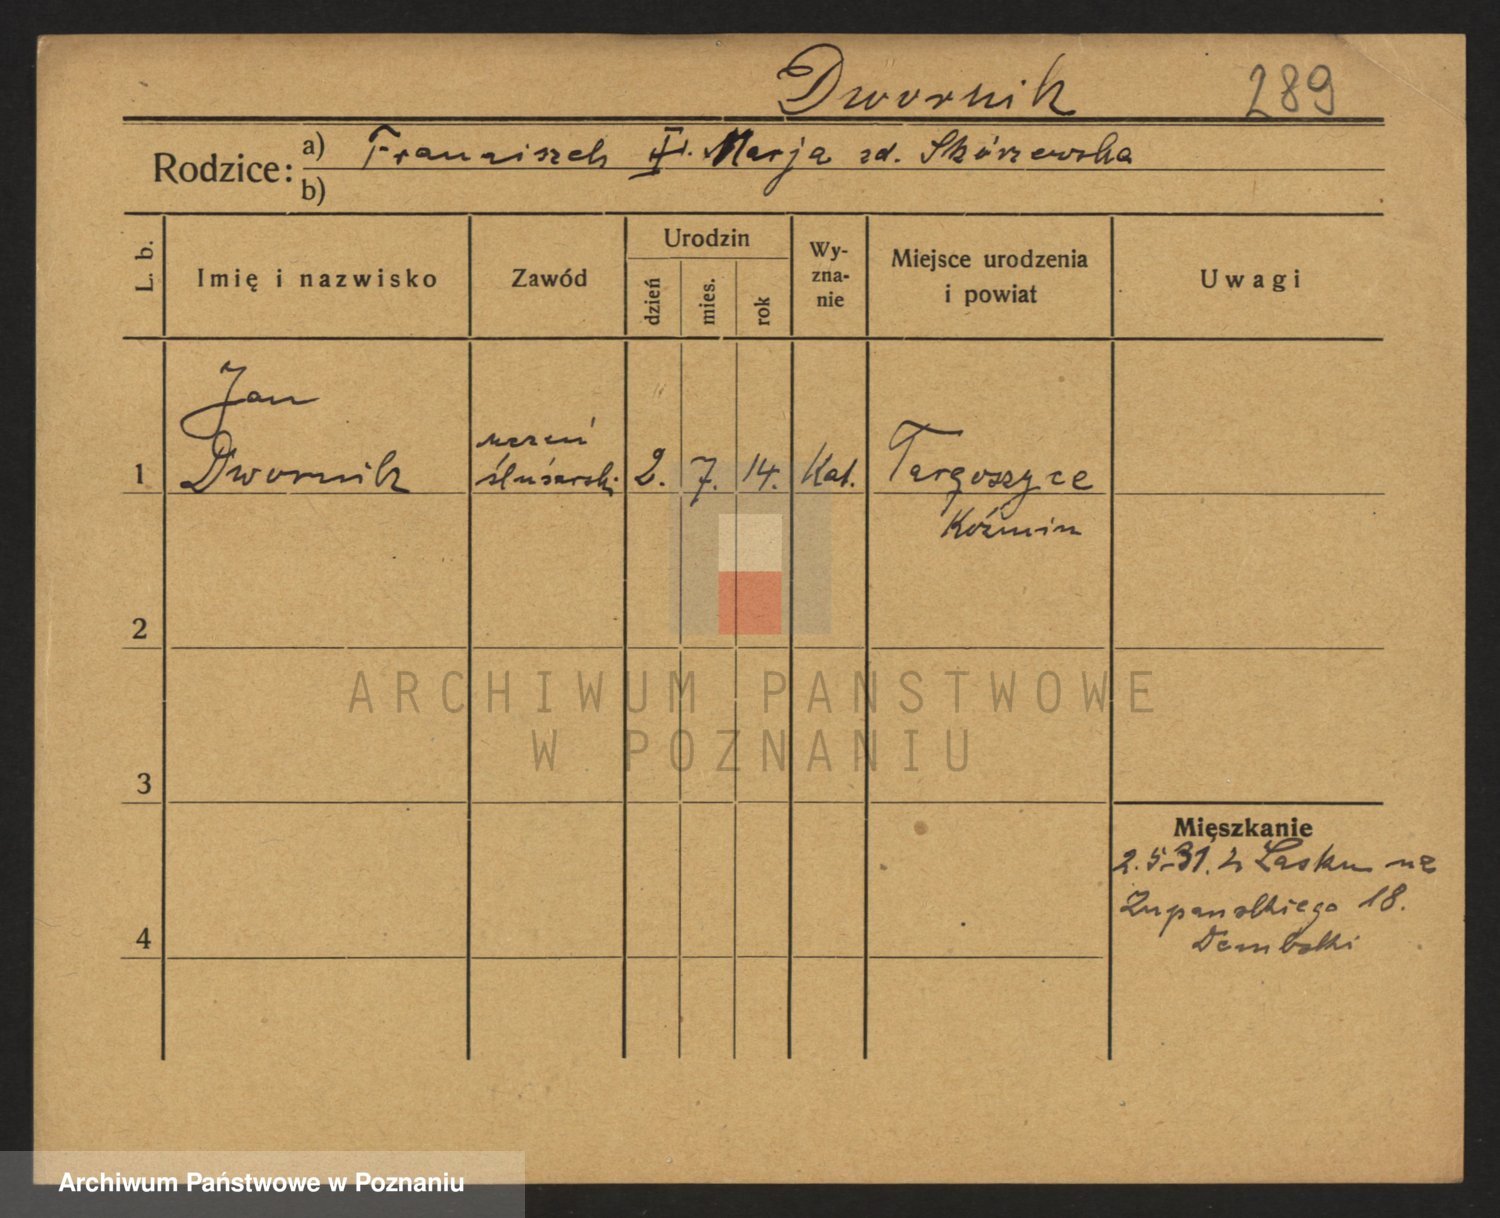 Dwornik 289
Rodzice: a) Franciszek Marja zd. Skórzewska
b)
L. b.
Imię i nazwisko
Zawód
Urodzin
dzień
mies.
rok
Wy-
zna-
nie
Miejsce urodzenia
i powiat
Uwagi
Jan
1 Dwornik uczeń ślusarski 2. 7. 14. Kat. Targoszyce
Koźmin
2
3
4
Mieszkanie
2.5.31. z Lasku na
Zupanskiego 18.
ARCHIWUM PAŃSTWOWE
W POZNANIU
Archiwum Państwowe w Poznaniu